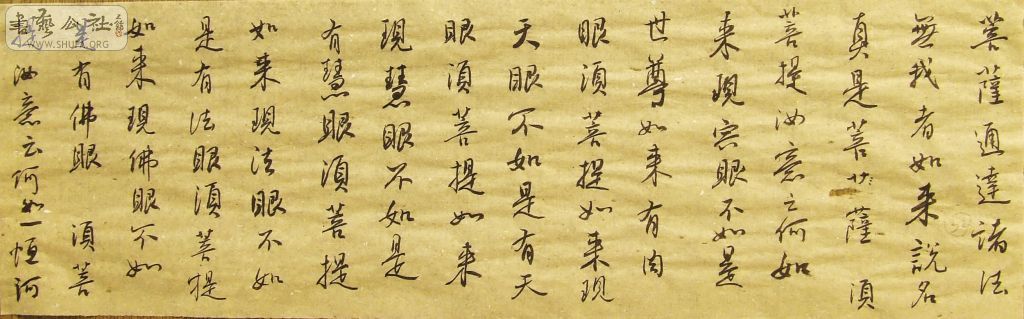 菩薩通達諸法
無我者如来說名
真是菩薩 須
菩提汝意云何如
来現宍眼不如是
世尊如来有肉
眼須菩提如来現
天眼不如是有天
眼須菩提如来
現慧眼不如是
有慧眼須菩提
如来現法眼不如
是有法眼須菩提
如来現佛眼不如
是有佛眼 須菩
提汝意云何如一恒河
书藝公社
WWW.SHUFA.ORG